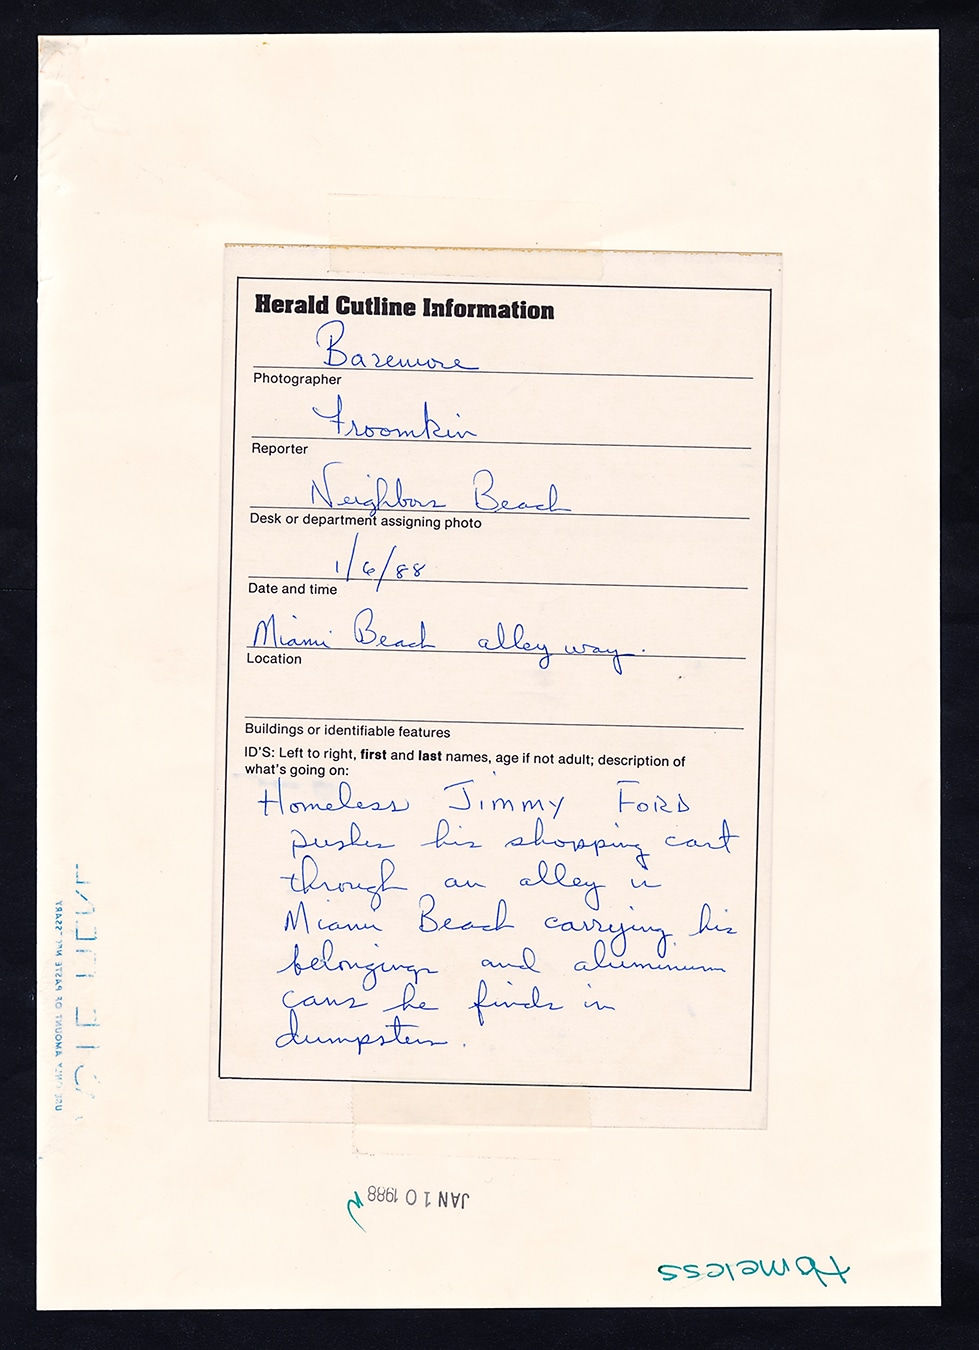 Herald Cutline Information
Baremore
Photographer
Froomkin
Reporter
Neighbors Beach
Desk or department assigning photo
1/6/88
Date and time
Miami Beach alley way.
Location
Buildings or identifiable features
ID'S: Left to right, first and last names, age if not adult; description of
what's going on:
Homeless Jimmy Ford
pushes his shopping cart
through an alley in
Miami Beach carrying his
belongings and aluminum
cans he finds in
dumpsters.
JAN 10 1988
Homeless
AMOUNT OF PASTE NECESSARY